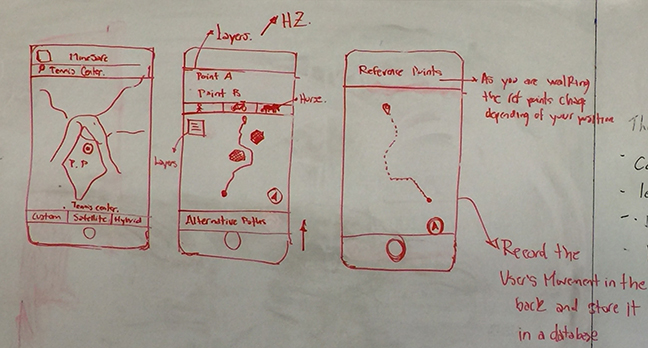 Layers.
HZ.
MineSafe
P Tennis Center.
P.P
Tennis center.
Custom
Satellite
Hybrid
Point A
Point B
House.
Layers
A
Alternative Paths
Reference Points
As you are walking
the ref points change
depending of your position
A
Record the
User's Movement in the
back and store it
in a database
Th